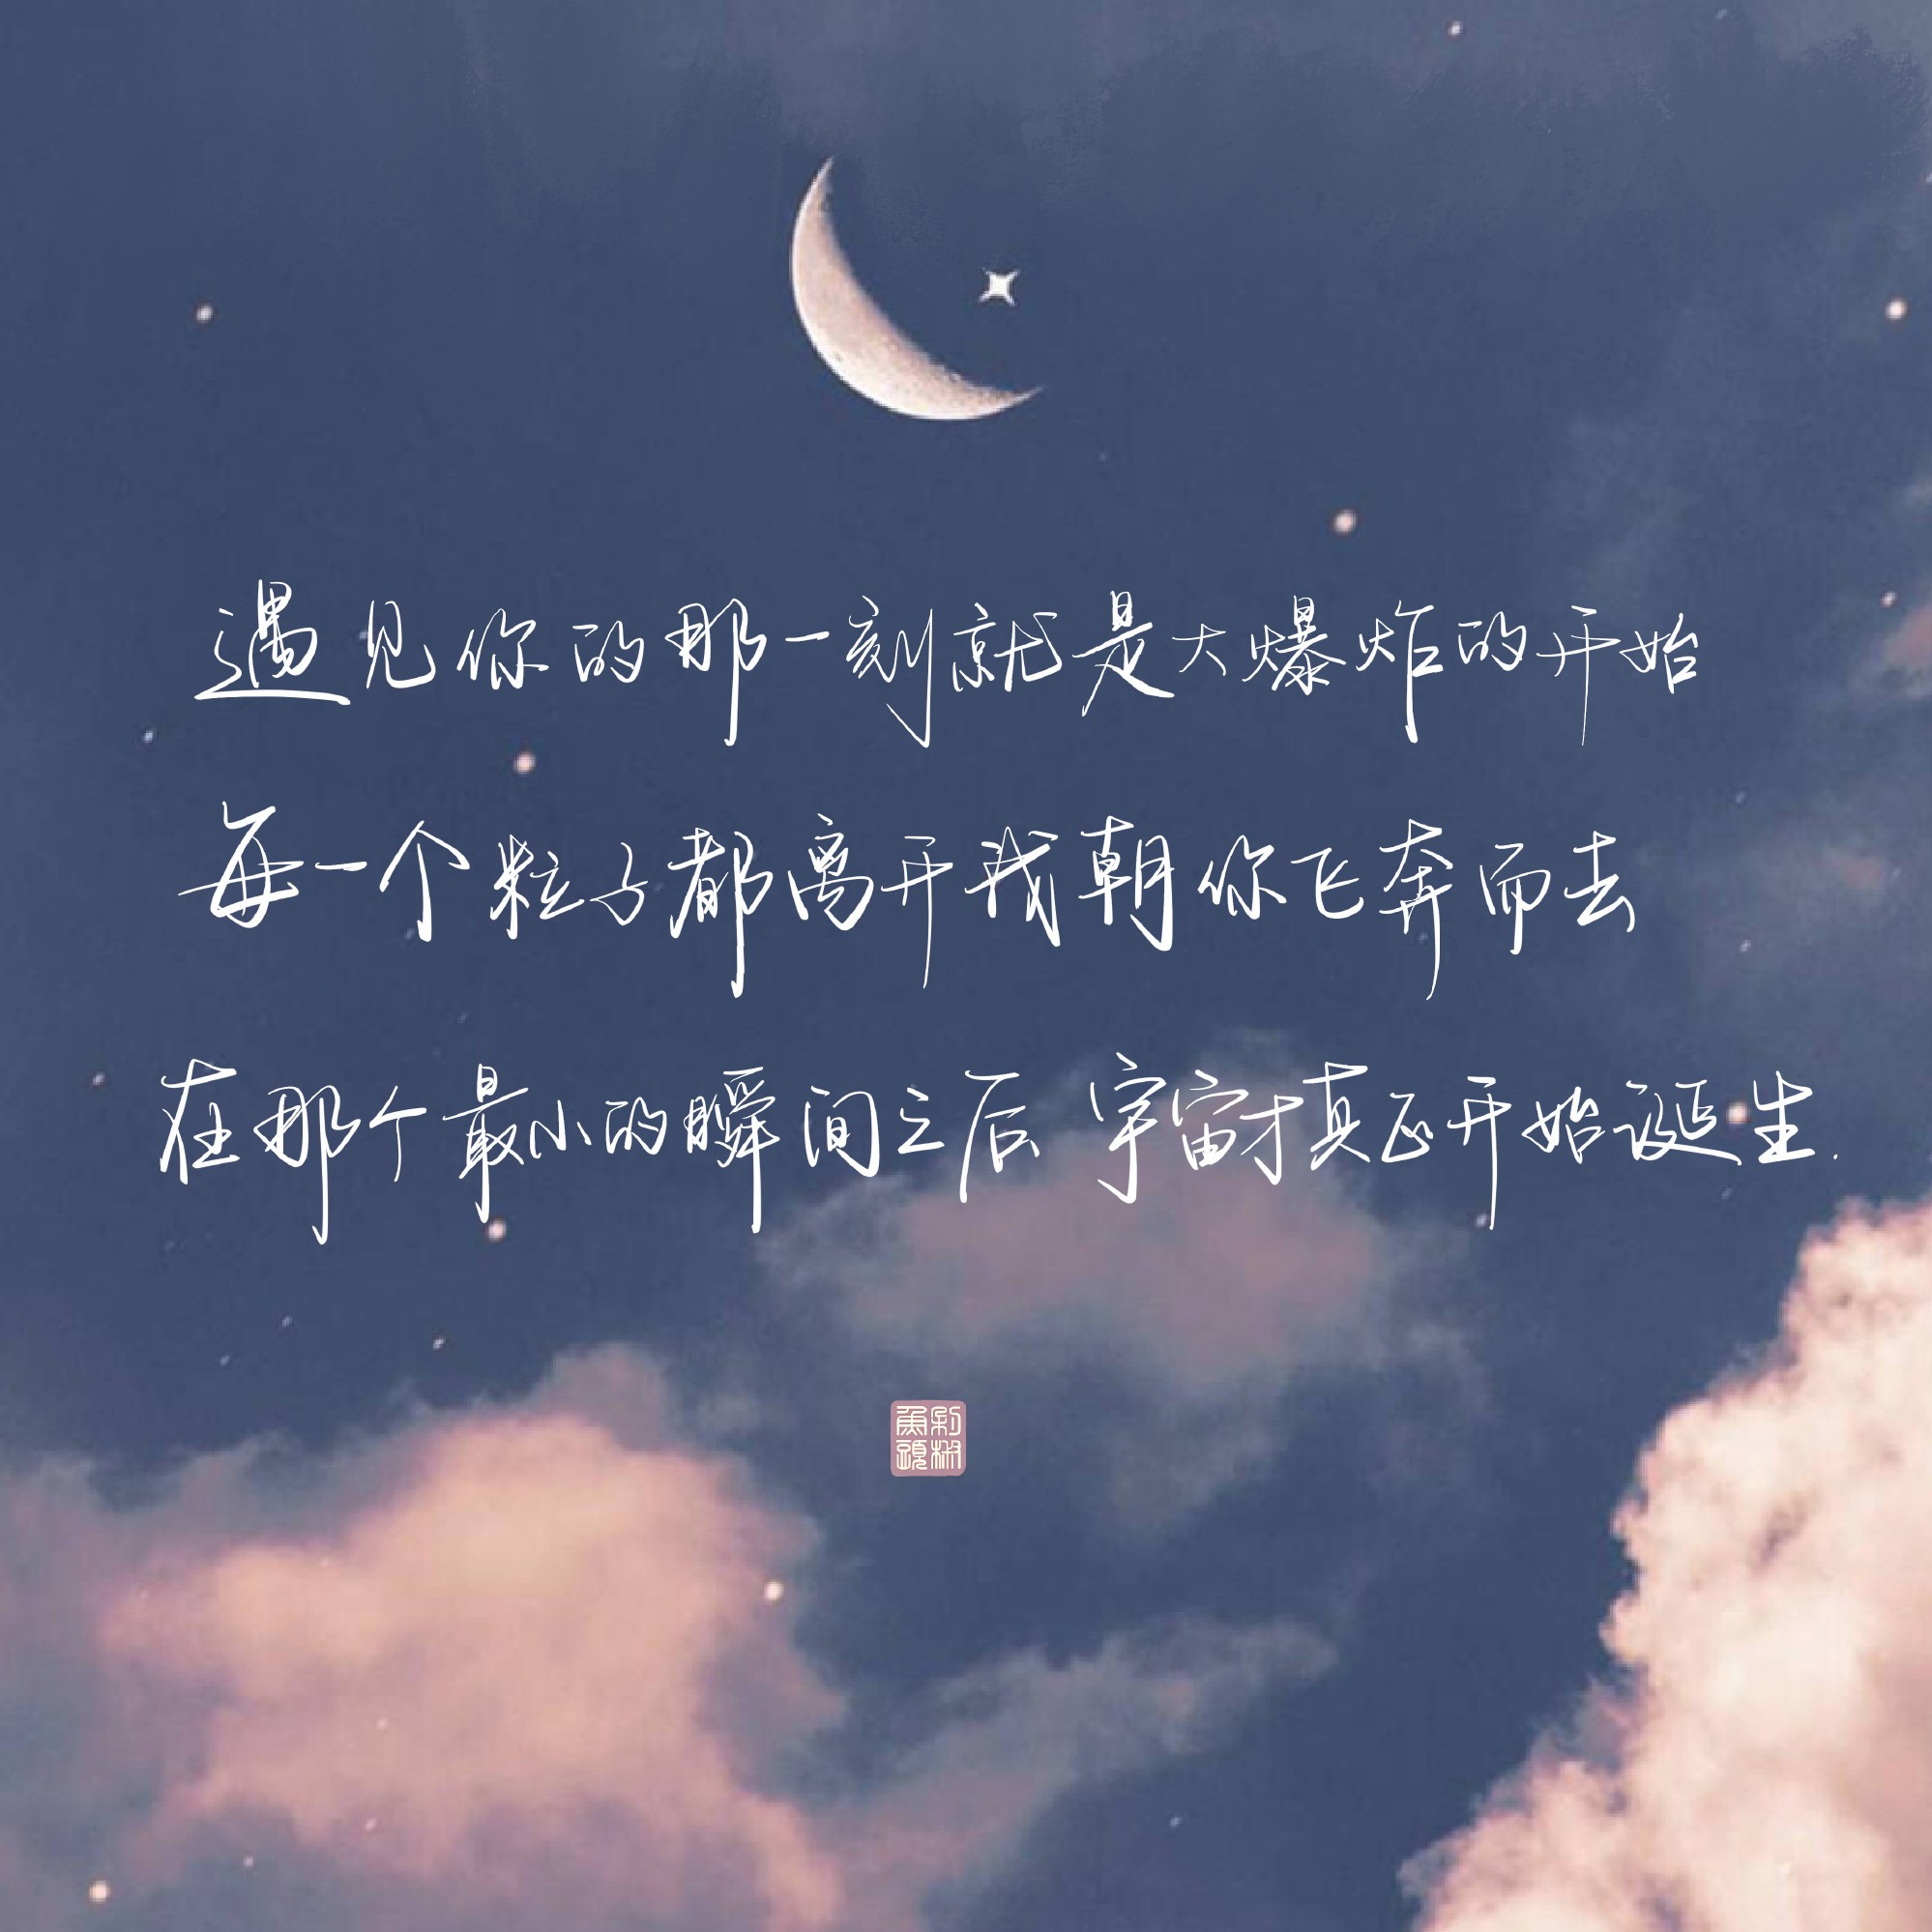 遇见你的那一刻就是大爆炸的开始
每一个粒子都离开我朝你飞奔而去
在那个最小的瞬间之后 宇宙才真正开始诞生.